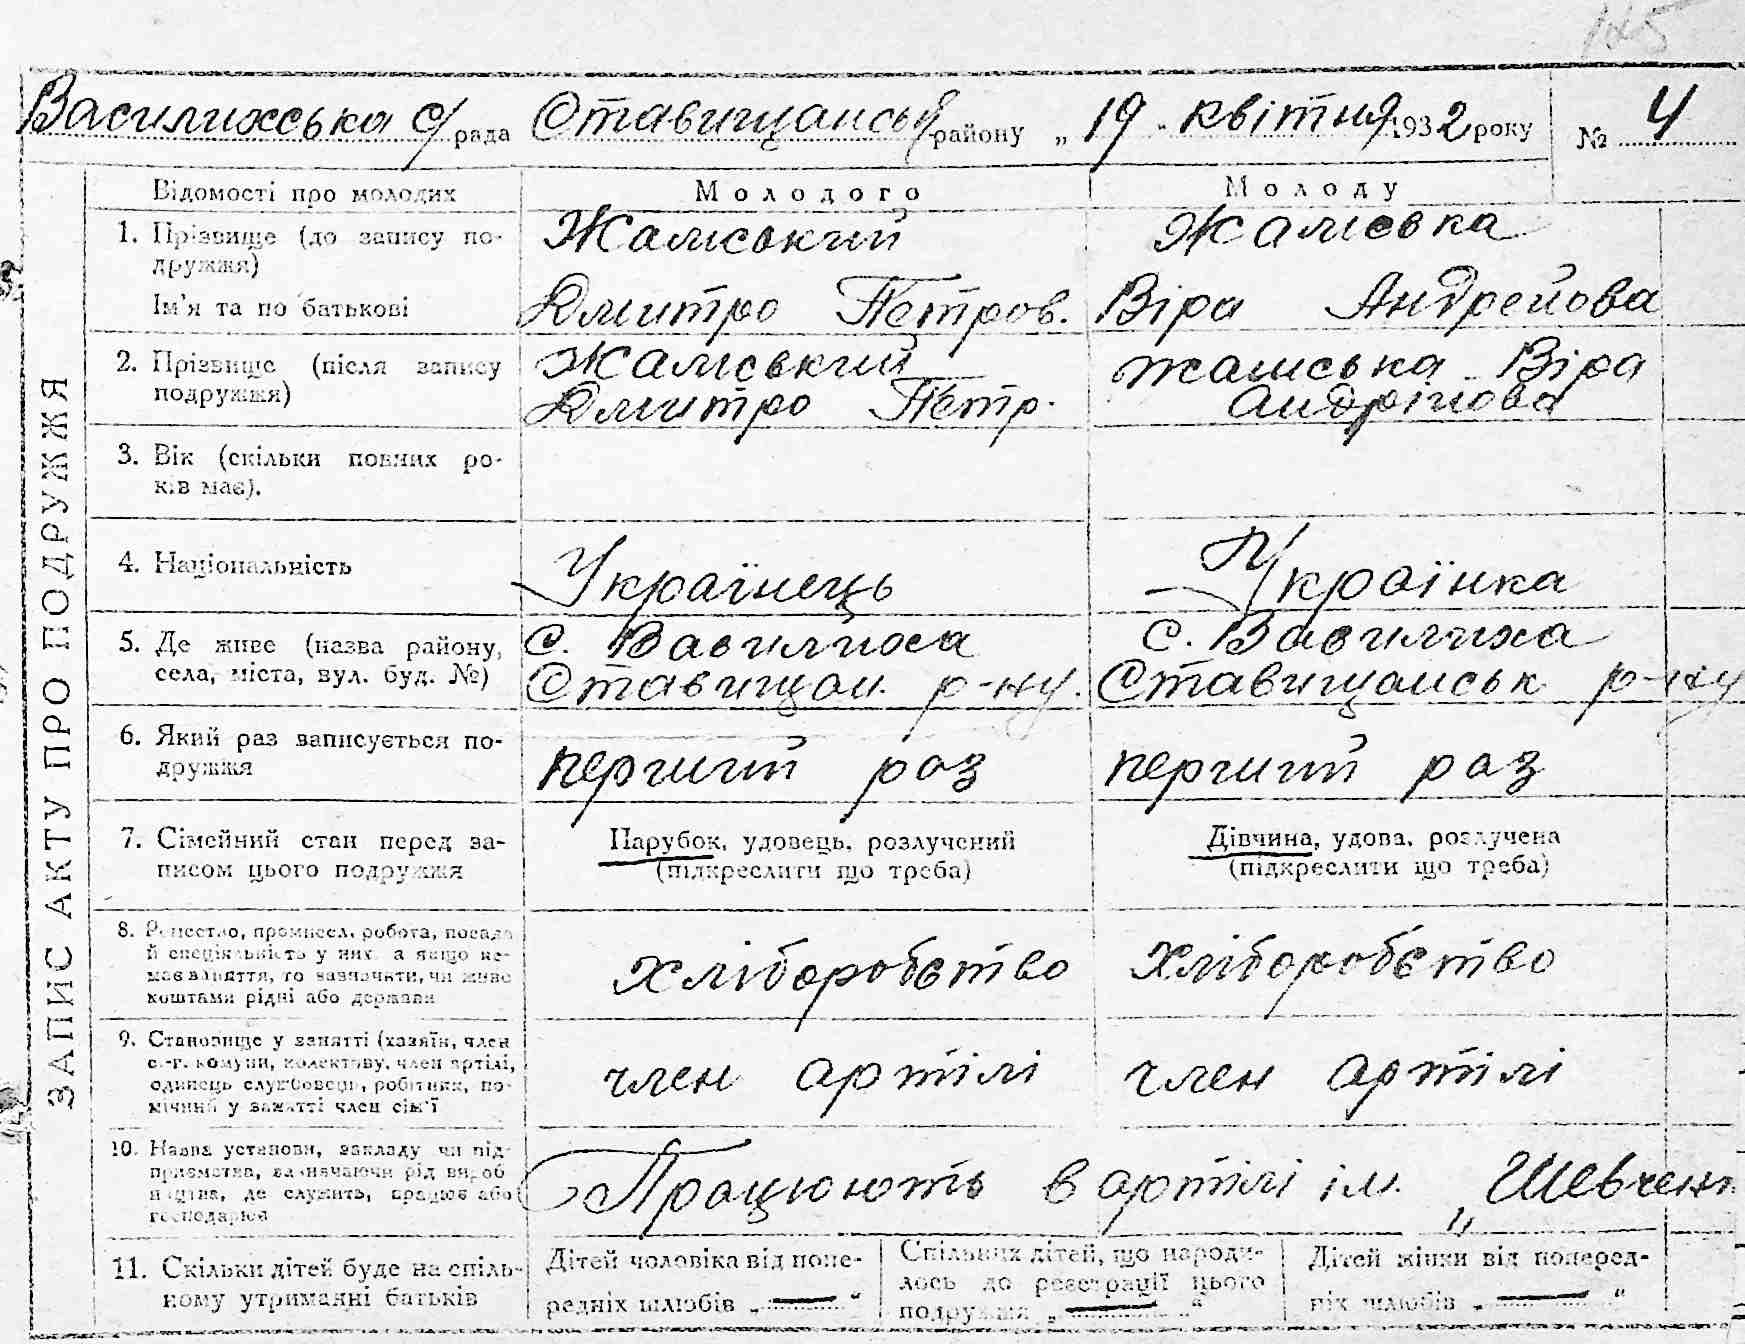 145
Василихська с/рада Ставищанськ району „19" квітня 1932 року № 4
ЗАПИС АКТУ ПРО ПОДРУЖЖЯ
Відомості про молодих Молодого Молоду
1. Прізвище (до запису по- Жамський Жамська
дружжя)
Ім'я та по батькові Дмитро Петров. Віра Андрейова
2. Прізвище (після запису Жамський Жамська Віра
подружжя) Дмитро Петр. Андрійова
3. Вік (скільки повних ро-
ків має).
4. Національність Українець Українка
5. Де живе (назва району, С. Василиха с. Василиха
села, міста, вул. буд. №) Ставищан. р-ну. Ставищанськ р-ну
6. Який раз записується по- перший раз перший раз
дружжя
7. Сімейний стан перед за- Парубок, удовець, розлучений Дівчина, удова, розлучена
писом цього подружжя (підкреслити що треба) (підкреслити що треба)
8. Ремество, промисел, робота, посада
й спеціяльність у них, а якщо не-
має заняття, то зазначити, чи живе хліборобство хліборобство
коштами рідні або держави
9. Становище у занятті (хазяїн, член
с.-г. комуни, колективу, член артілі, член артілі член артілі
одинець службовець, робітник, по-
мічний у занятті член сім'ї
10. Назва установи, закладу чи під-
приємства, зазначаючи рід вироб Працюють в артілі ім. „Шевчен
ництва, де служить, працює або
господарює
11. Скільки дітей буде на спіль- Дітей чоловіка від попе- Спільних дітей, що народи- Дітей жінки від поперед-
ному утриманні батьків редніх шлюбів „—" лось до реєстрації цього ніх шлюбів „—"
подружжя „—"